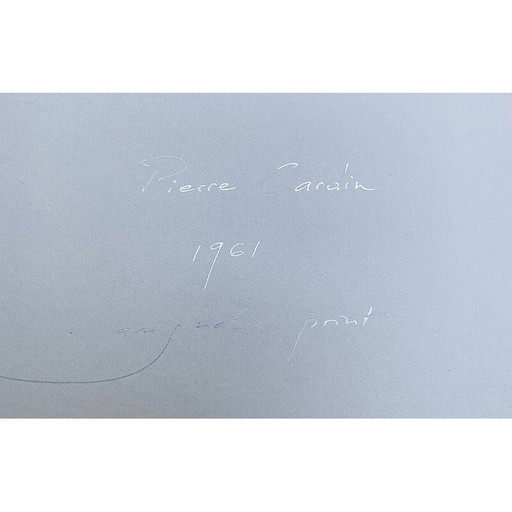 Pierre Cardin
1961
original print